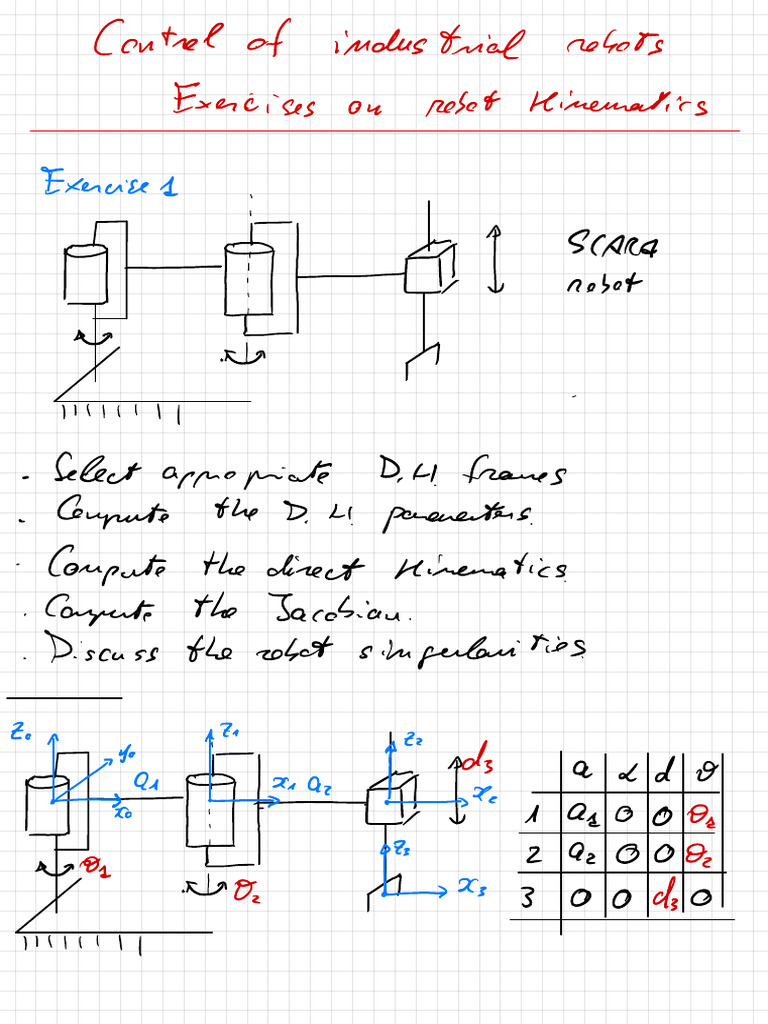 Control of industrial robots
Exercises on robot Kinematics
Exercise 1
SCARA
robot
. Select appropriate D.H. frames
. Compute the D.H. parameters.
. Compute the direct Kinematics
. Compute the Jacobian.
. Discuss the robot singularities
z₀
y₀
x₀
a₁
θ₁
z₁
x₁ a₂
θ₂
z₂
d₃
x₂
z₃
x₃
a α d θ
1 a₁ 0 0 θ₁
2 a₂ 0 0 θ₂
3 0 0 d₃ 0